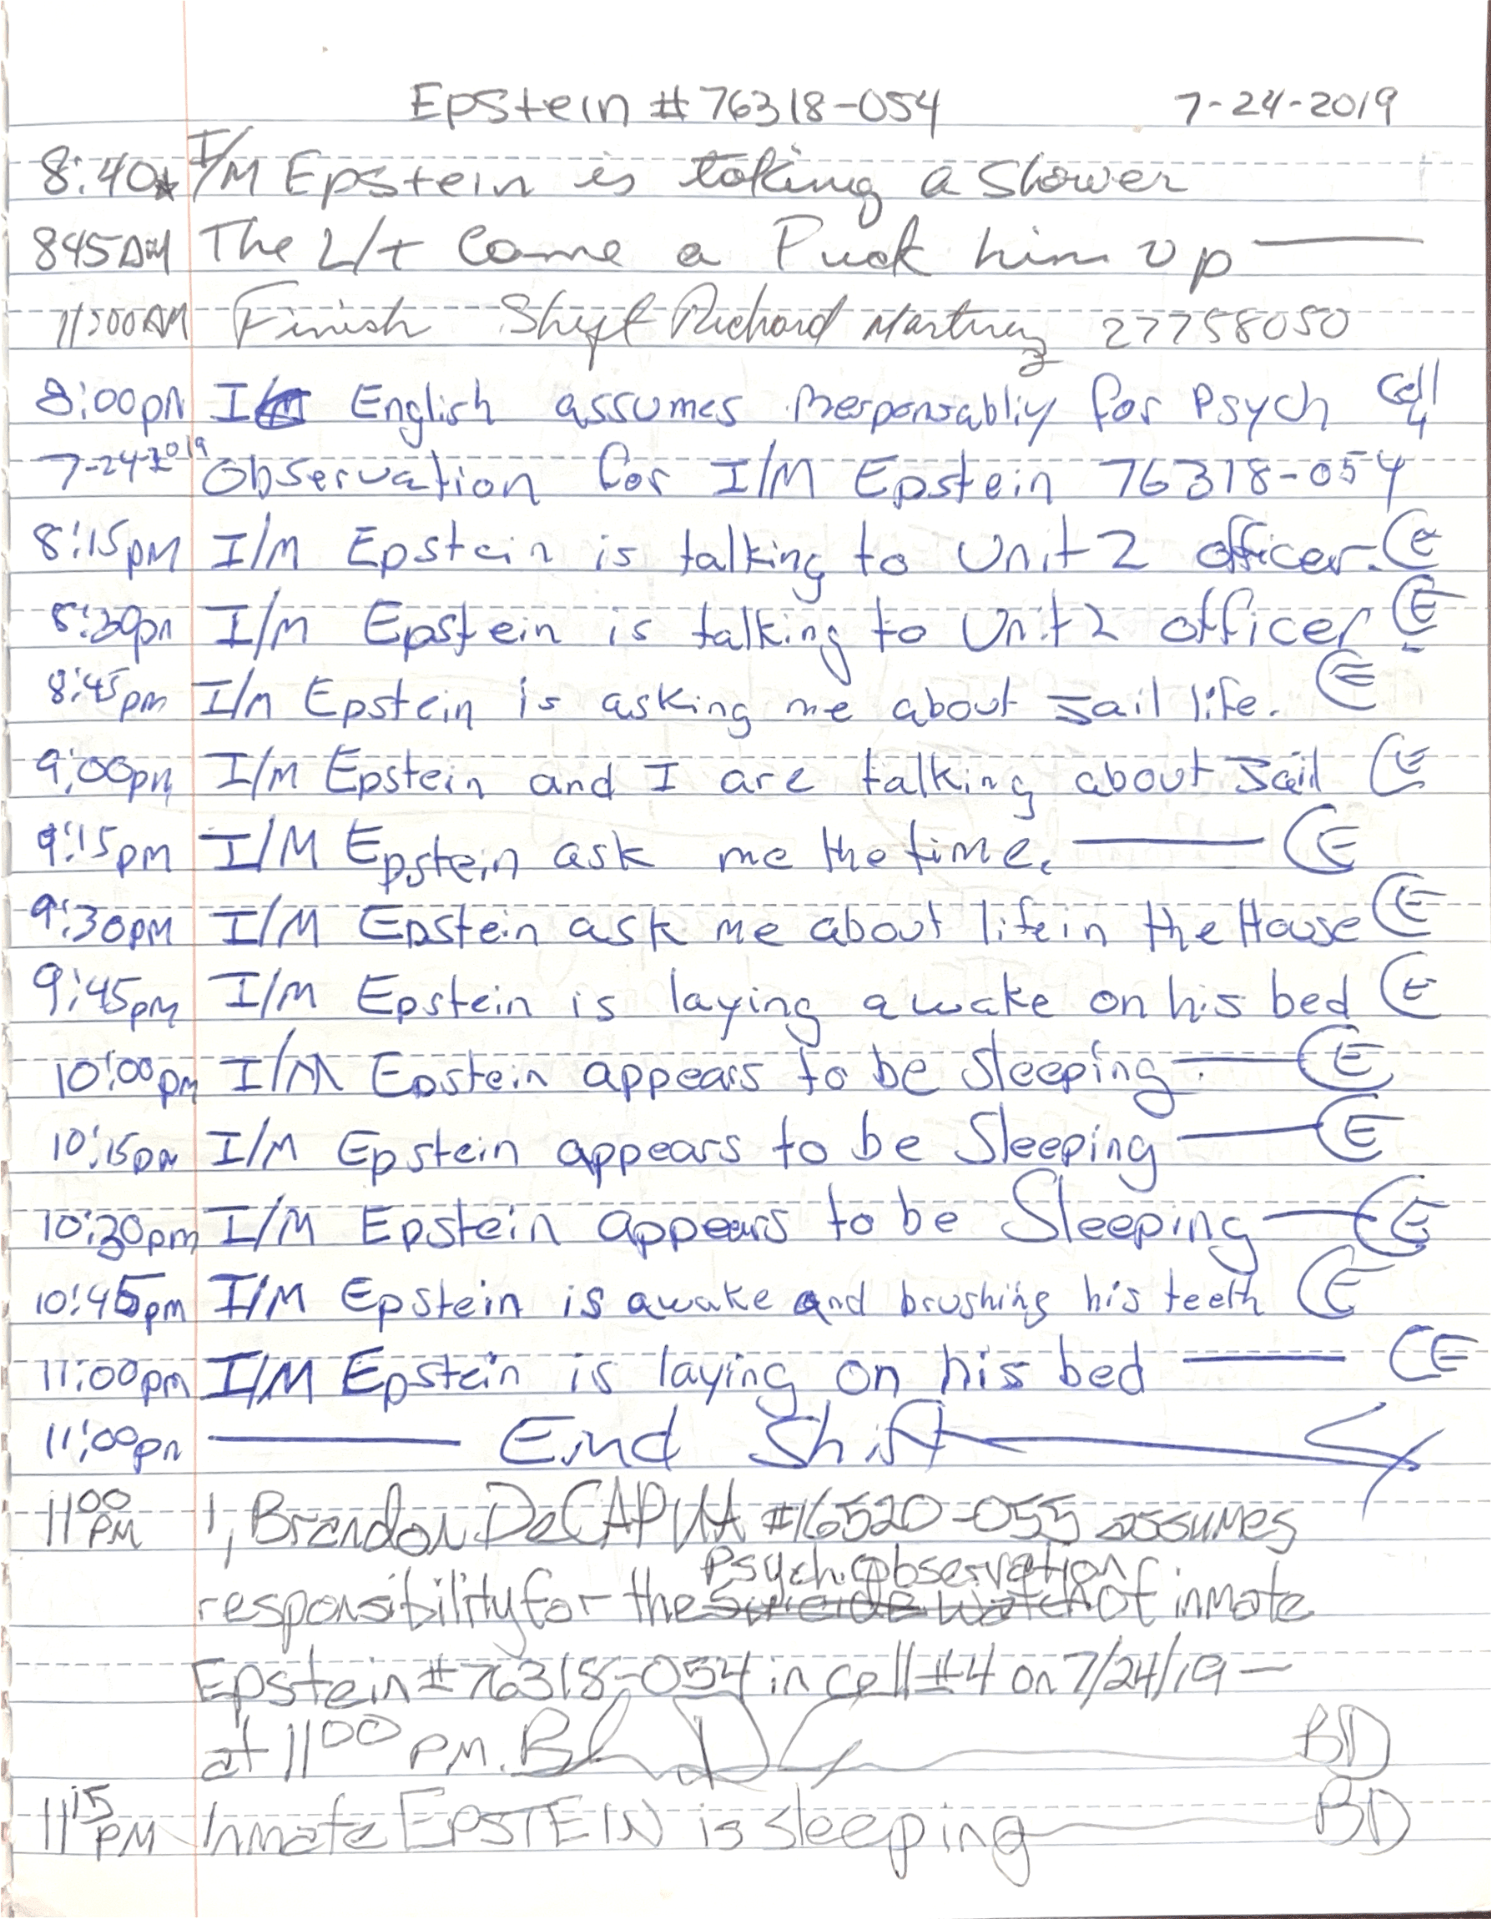 Epstein # 76318-054 7-24-2019
8:40 I/M Epstein is taking a shower
845AM The L/t Came a Puck him up
11:00AM Finish Shift Richard Martinez 27758050
8:00pm I/M English assumes Responsabliy for Psych Cell 4
7-24-2019 Observation for I/M Epstein 76318-054
8:15pm I/M Epstein is talking to Unit 2 officer. CE
8:30pm I/M Epstein is talking to Unit 2 officer CE
8:45pm I/M Epstein is asking me about Jail life. CE
9:00pm I/M Epstein and I are talking about Jail CE
9:15pm I/M Epstein ask me the time. CE
9:30pm I/M Epstein ask me about life in the House CE
9:45pm I/M Epstein is laying awake on his bed CE
10:00pm I/M Epstein appears to be sleeping. CE
10:15pm I/M Epstein appears to be Sleeping CE
10:30pm I/M Epstein appears to be Sleeping CE
10:45pm I/M Epstein is awake and brushing his teeth CE
11:00pm I/M Epstein is laying on his bed CE
11:00pm End Shift
11 00 PM I, Brandon DeCAPUA #16520-055 assumes
Psych. Observation
responsibility for the Suicide Watch of inmate
Epstein #76318-054 in cell #4 on 7/24/19 —
at 11 00 PM. BD
11 15 PM Inmate EPSTEIN is sleeping BD